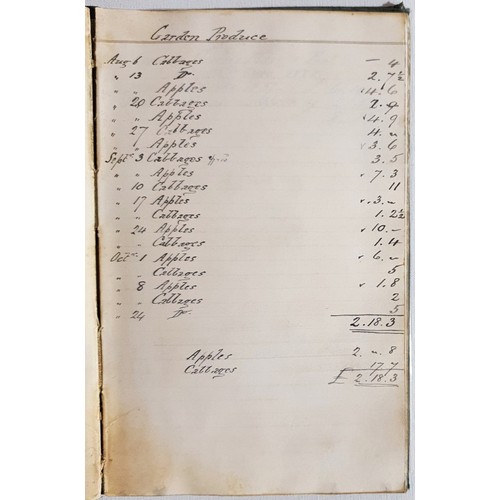 Garden Produce
Aug 6 Cabbages - 4
" 13 Do. 2. 7½
" " Apples 4. 6
" 20 Cabbages 2. 9
" " Apples 4. 9
" 27 Cabbages 4. "
" " Apples 3. 6
Sept. 3 Cabbages 3. 5
" " Apples 7. 3
" 10 Cabbages 11
" 17 Apples 3. "
" " Cabbages 1. 2½
" 24 Apples 10. "
" " Cabbages 1. 4
Oct. 1 Apples 6. "
" " Cabbages 5
" 8 Apples 1. 8
" " Cabbages 2
" 24 Do. 5
2. 18. 3
Apples 2. " 8
Cabbages 17 7
£ 2. 18. 3